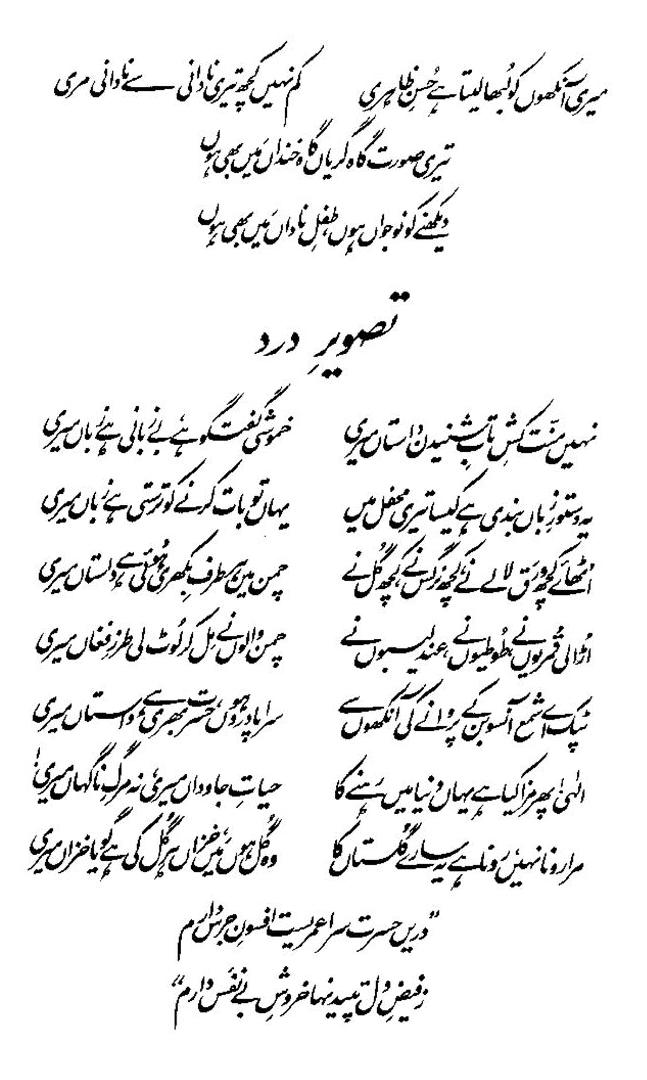 میری آنکھوں کو لُبھا لیتا ہے حُسنِ ظاہری کم نہیں کچھ تیری نادانی سے نادانی مری
تیری صورت گاہ گریاں گاہ خنداں مَیں بھی ہوں
دیکھنے کو نوجواں ہوں، طفلِ ناداں مَیں بھی ہوں
تصویرِ درد
نہیں منّت کشِ تابِ شنیدن داستاں میری خموشی گفتگو ہے، بے زبانی ہے زباں میری
یہ دستورِ زباں بندی ہے کیسا تیری محفل میں یہاں تو بات کرنے کو ترستی ہے زباں میری
اُٹھائے کچھ ورَق لالے نے، کچھ نرگس نے، کچھ گُل نے چمن میں ہر طرف بِکھری ہُوئی ہے داستاں میری
اُڑالی قُمریوں نے، طُوطیوں نے، عندلیبوں نے چمن والوں نے مِل کر لُوٹ لی طرزِ فغاں میری
ٹپک اے شمع آنسو بن کے پروانے کی آنکھوں سے سراپا درد ہوں، حسرت بھری ہے داستاں میری
الٰہی! پھر مزا کیا ہے یہاں دنیا میں رہنے کا حیاتِ جاوداں میری، نہ مرگِ ناگہاں میری!
مرا رونا نہیں، رونا ہے یہ سارے گُلستاں کا وہ گُل ہوں مَیں، خزاں ہر گُل کی ہے گویا خزاں میری
”دریں حسرت سرا عمریست افسونِ جرس دارم
ز فیضِ دل تپیدنہا خروشِ بے نفَس دارم“